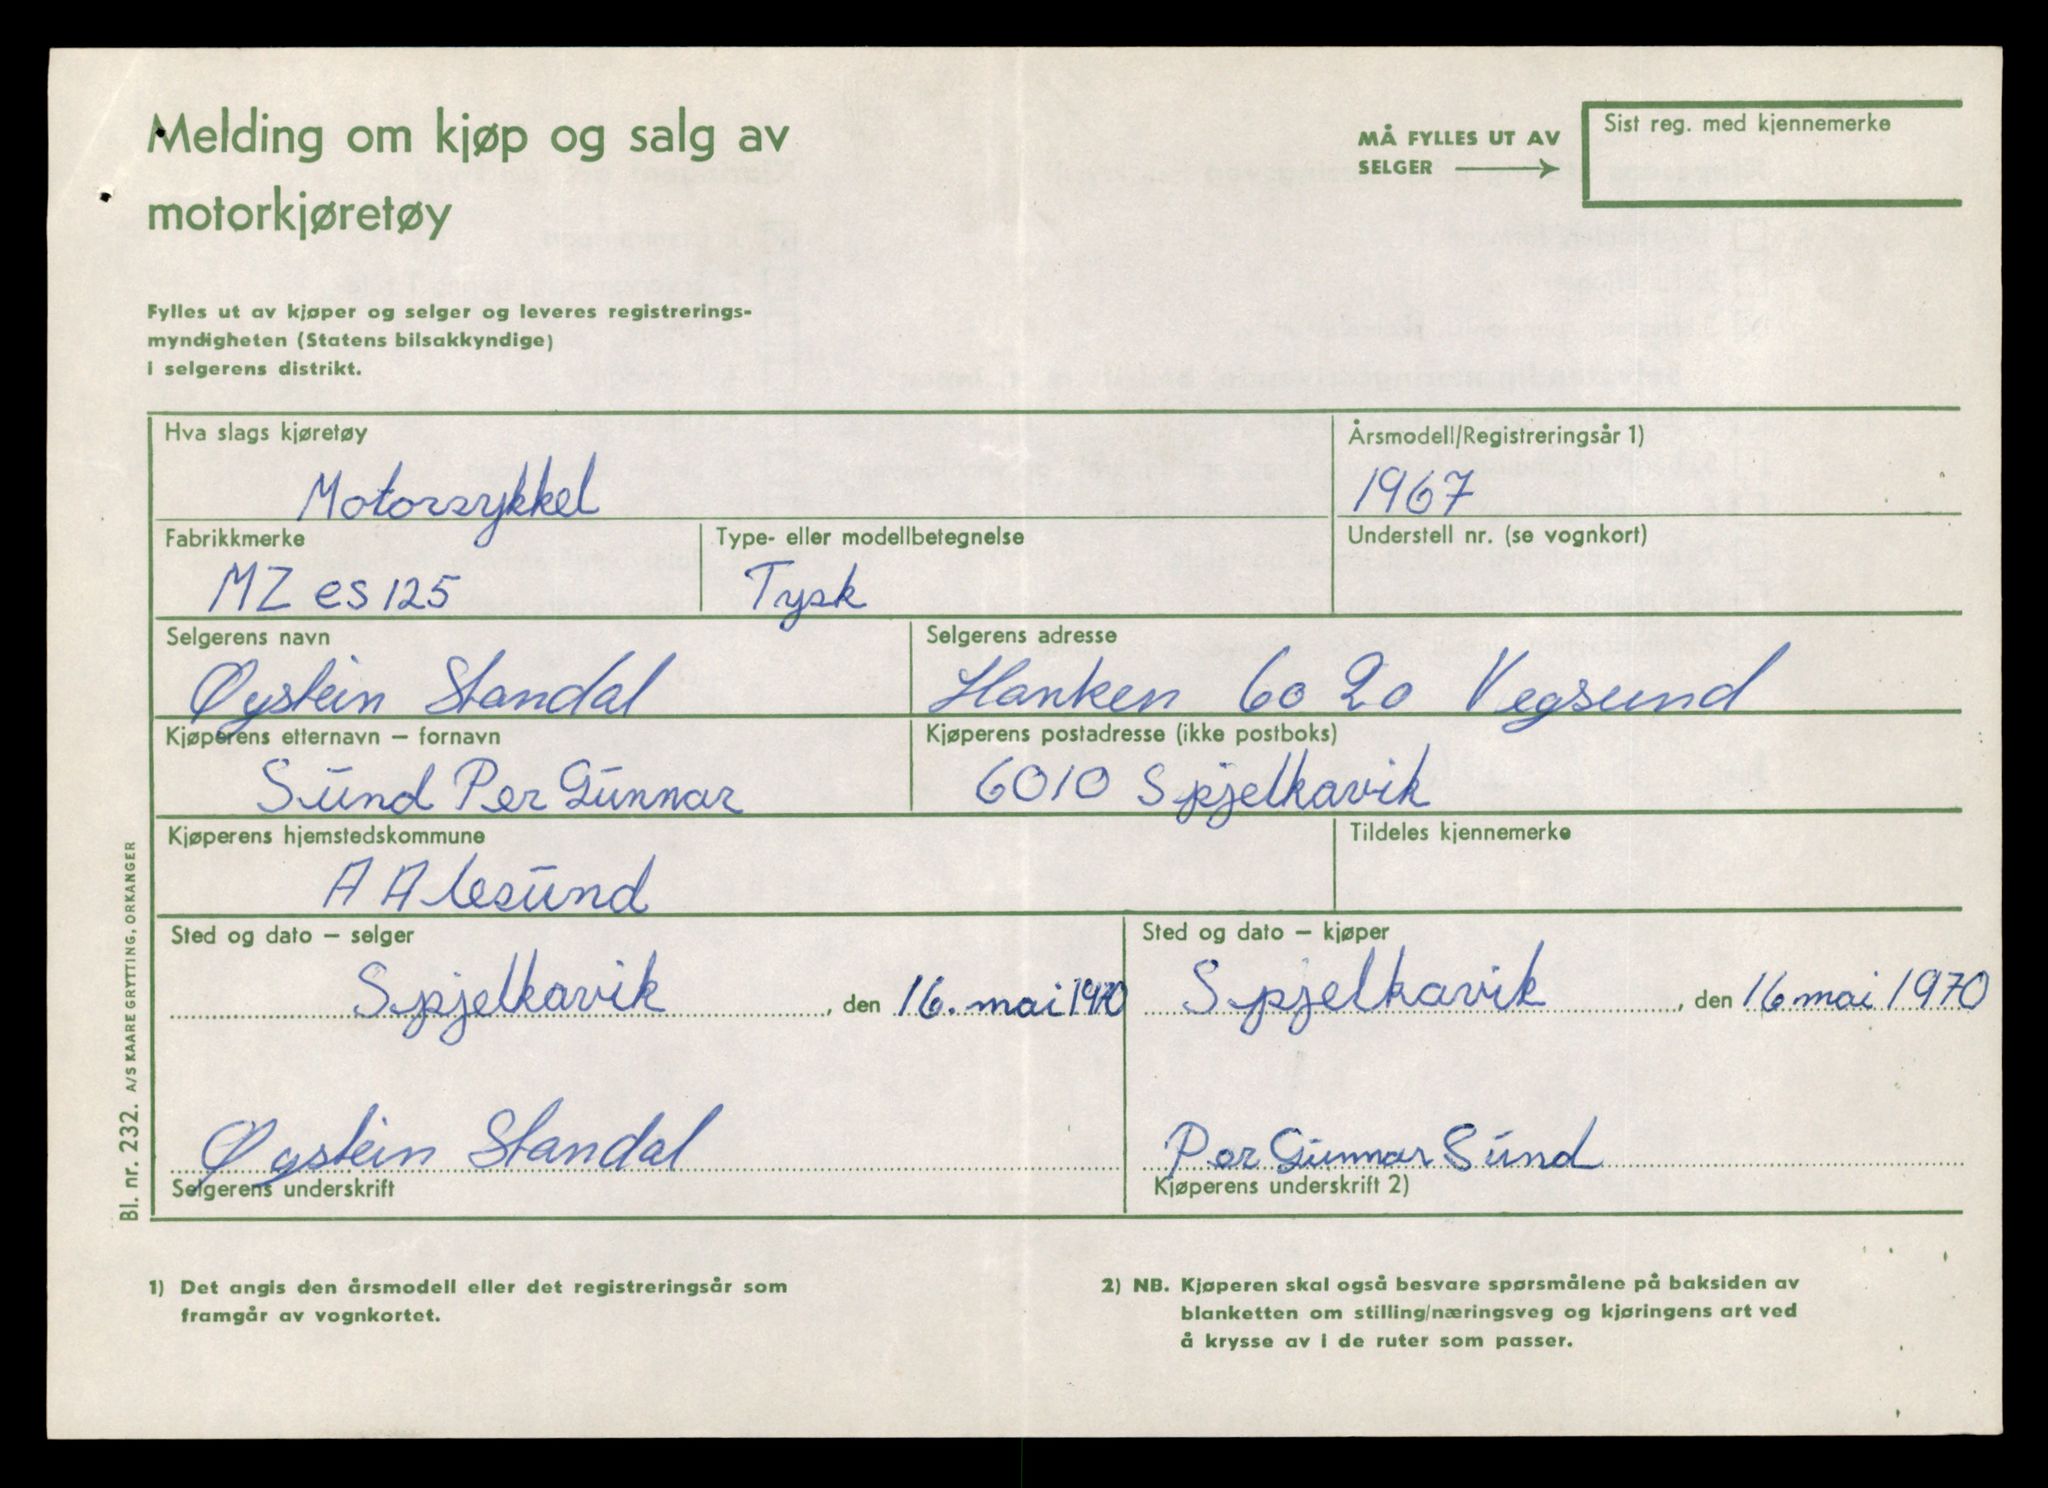 Melding om kjøp og salg av
motorkjøretøy
MÅ FYLLES UT AV
SELGER
Sist reg. med kjennemerke
Fylles ut av kjøper og selger og leveres registrerings-
myndigheten (Statens bilsakkyndige)
i selgerens distrikt.
Hva slags kjøretøy
Motorsykkel
Årsmodell/Registreringsår 1)
1967
Fabrikkmerke
MZ es 125
Type- eller modellbetegnelse
Tysk
Understell nr. (se vognkort)
Selgerens navn
Øystein Standal
Selgerens adresse
Hanken 6020 Vegsund
Kjøperens etternavn – fornavn
Sund Per Gunnar
Kjøperens postadresse (ikke postboks)
6010 Spjelkavik
Kjøperens hjemstedskommune
AAlesund
Tildeles kjennemerke
Sted og dato – selger
Spjelkavik, den 16. mai 1970
Sted og dato – kjøper
Spjelkavik, den 16 mai 1970
Øystein Standal
Selgerens underskrift
Per Gunnar Sund
Kjøperens underskrift 2)
Bl. nr. 232. A/S KAARE GRYTTING, ORKANGER
1) Det angis den årsmodell eller det registreringsår som
framgår av vognkortet.
2) NB. Kjøperen skal også besvare spørsmålene på baksiden av
blanketten om stilling/næringsveg og kjøringens art ved
å krysse av i de ruter som passer.